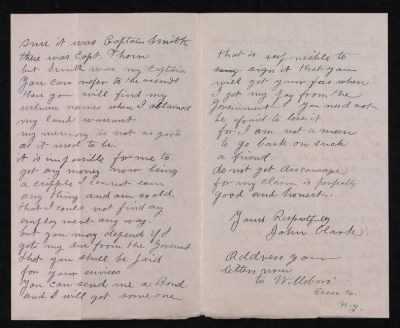 sure it was Captain Smith
there was Capt Thorn
but Smith was my Captain
You can refer to the record
there you will find my
witness names when I obtained
my land warrant
my memory is not as good
as it used to be.
it is impossible for me to
get any money now being
a cripple I cannot earn
any thing and am so old
that I could not find any
employment any way.
but you may depend if I
get my due from the Governmt
that you shall be paid
for your services
You can send me a Bond
and I will get some one
that is responsible to
sign it that you
will get your fees when
I get my pay from the
government You need not
be afraid to lose it
for I am not a man
to go back on such
a friend.
do not get discouraged
for my claim is perfectly
good and honest.
Yours Respectfully
John Clarke
Address your
letters now
to Willsboro
Essex Co.
N.Y.